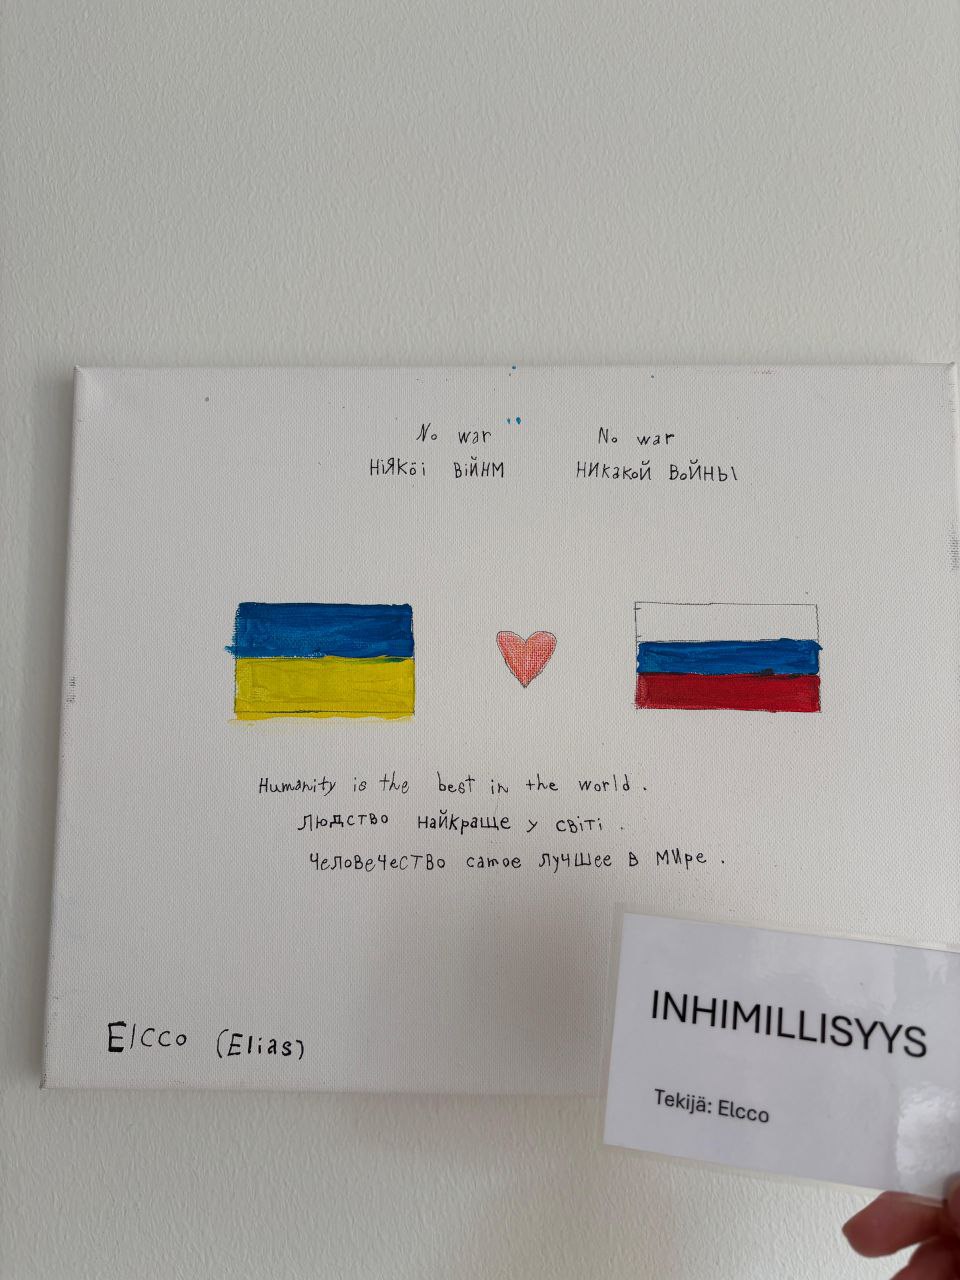 No war No war
НіЯКої ВіЙНМ НИКаКоЙ ВоЙНЫ
Humanity is the best in the world .
Людство найкраще у світі .
Человечество самое лучшее в мире .
Elcco (Elias)
INHIMILLISYYS
Tekijä: Elcco